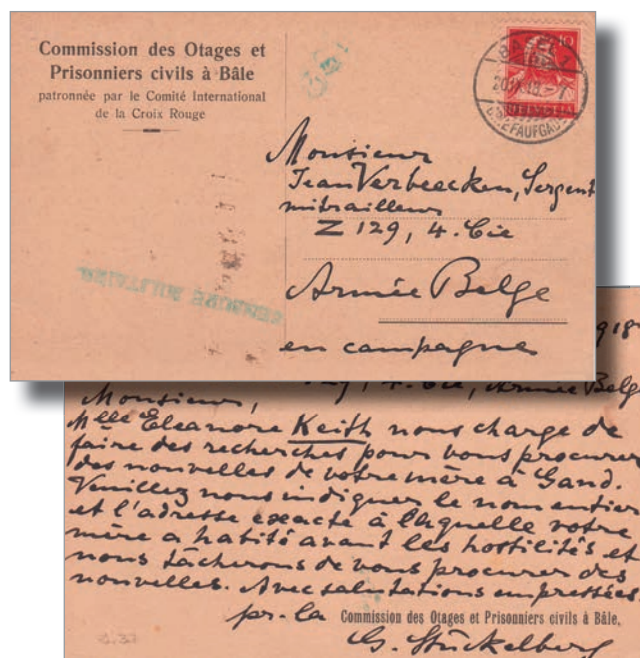 Commission des Otages et
Prisonniers civils à Bâle
patronnée par le Comité International
de la Croix Rouge
10
BASEL 1
BRIEFAUFGABE
HELVETIA
Monsieur
Jean Verbeecken, Sergent
mitrailleur
Z 129, 4. Cie
Armée Belge
en campagne
CENSURE MILITAIRE
918
129, 4. Cie, Armée Belge
Monsieur,
Mlle Eleanore Keith nous charge de
faire des recherches pour vous procurer
des nouvelles de votre mère à Gand.
Veuillez nous indiquer le nom entier
et l'adresse exacte à laquelle votre
mère a habité avant les hostilités et
nous tâcherons de vous procurer des
nouvelles. Avec salutations empressées
pr. la Commission des Otages et Prisonniers civils à Bâle,
G. Stückelberg